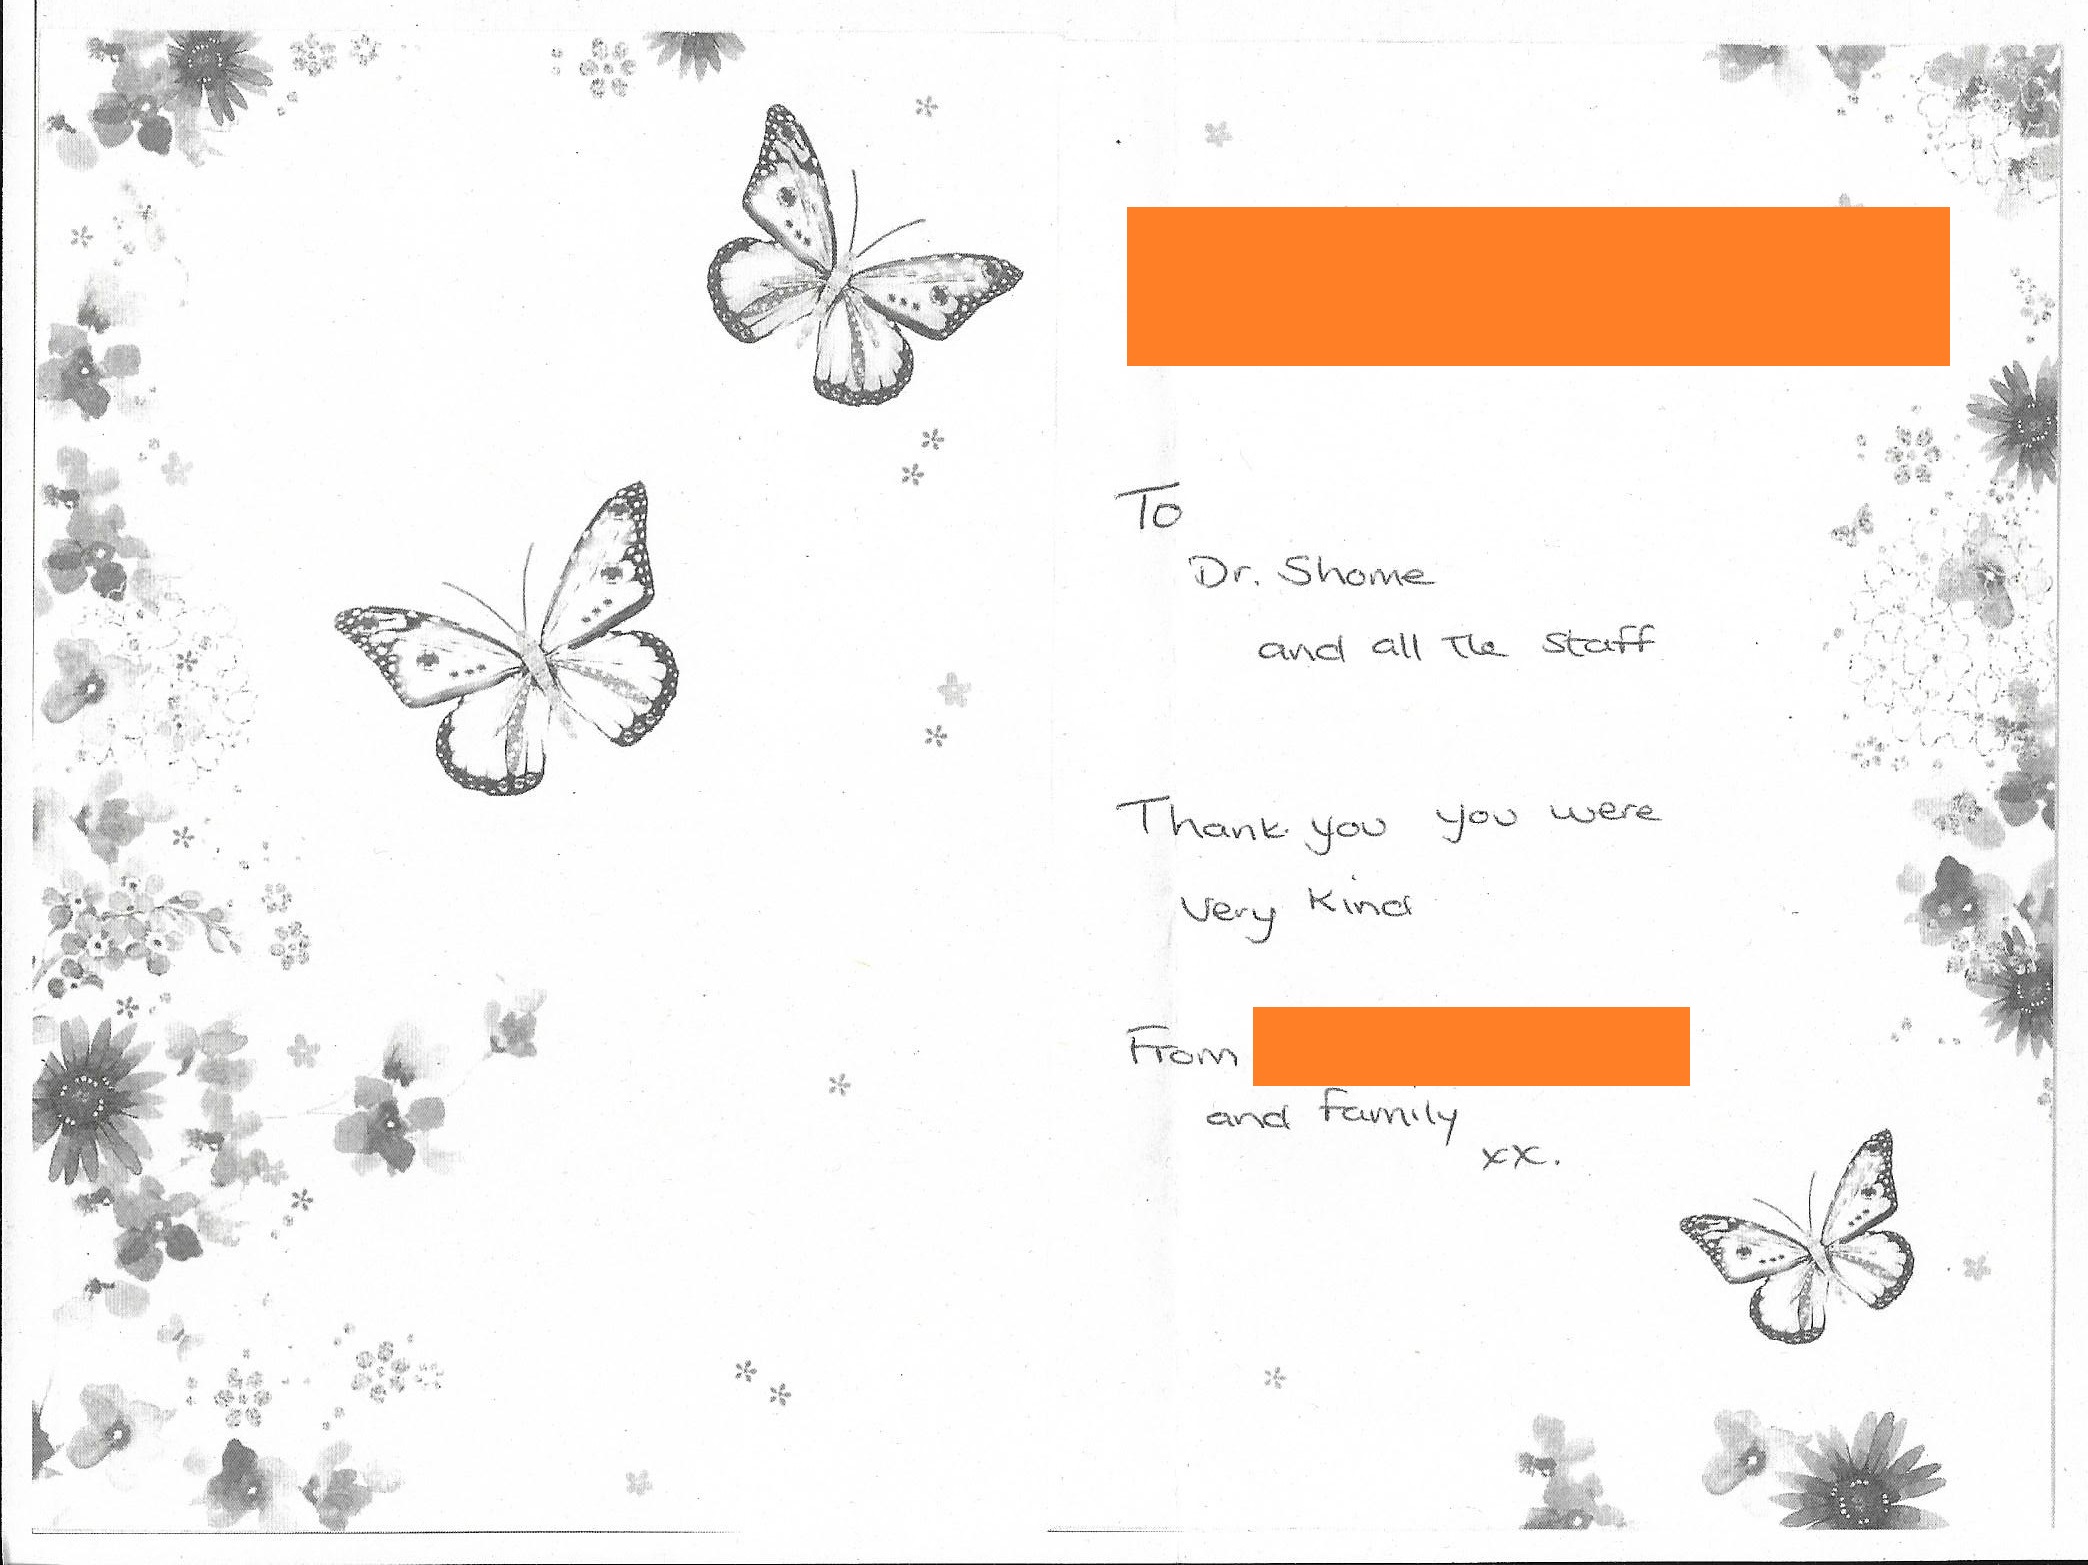 To
Dr. Shome
and all the staff
Thank you you were
very kind
From
and family
xx.